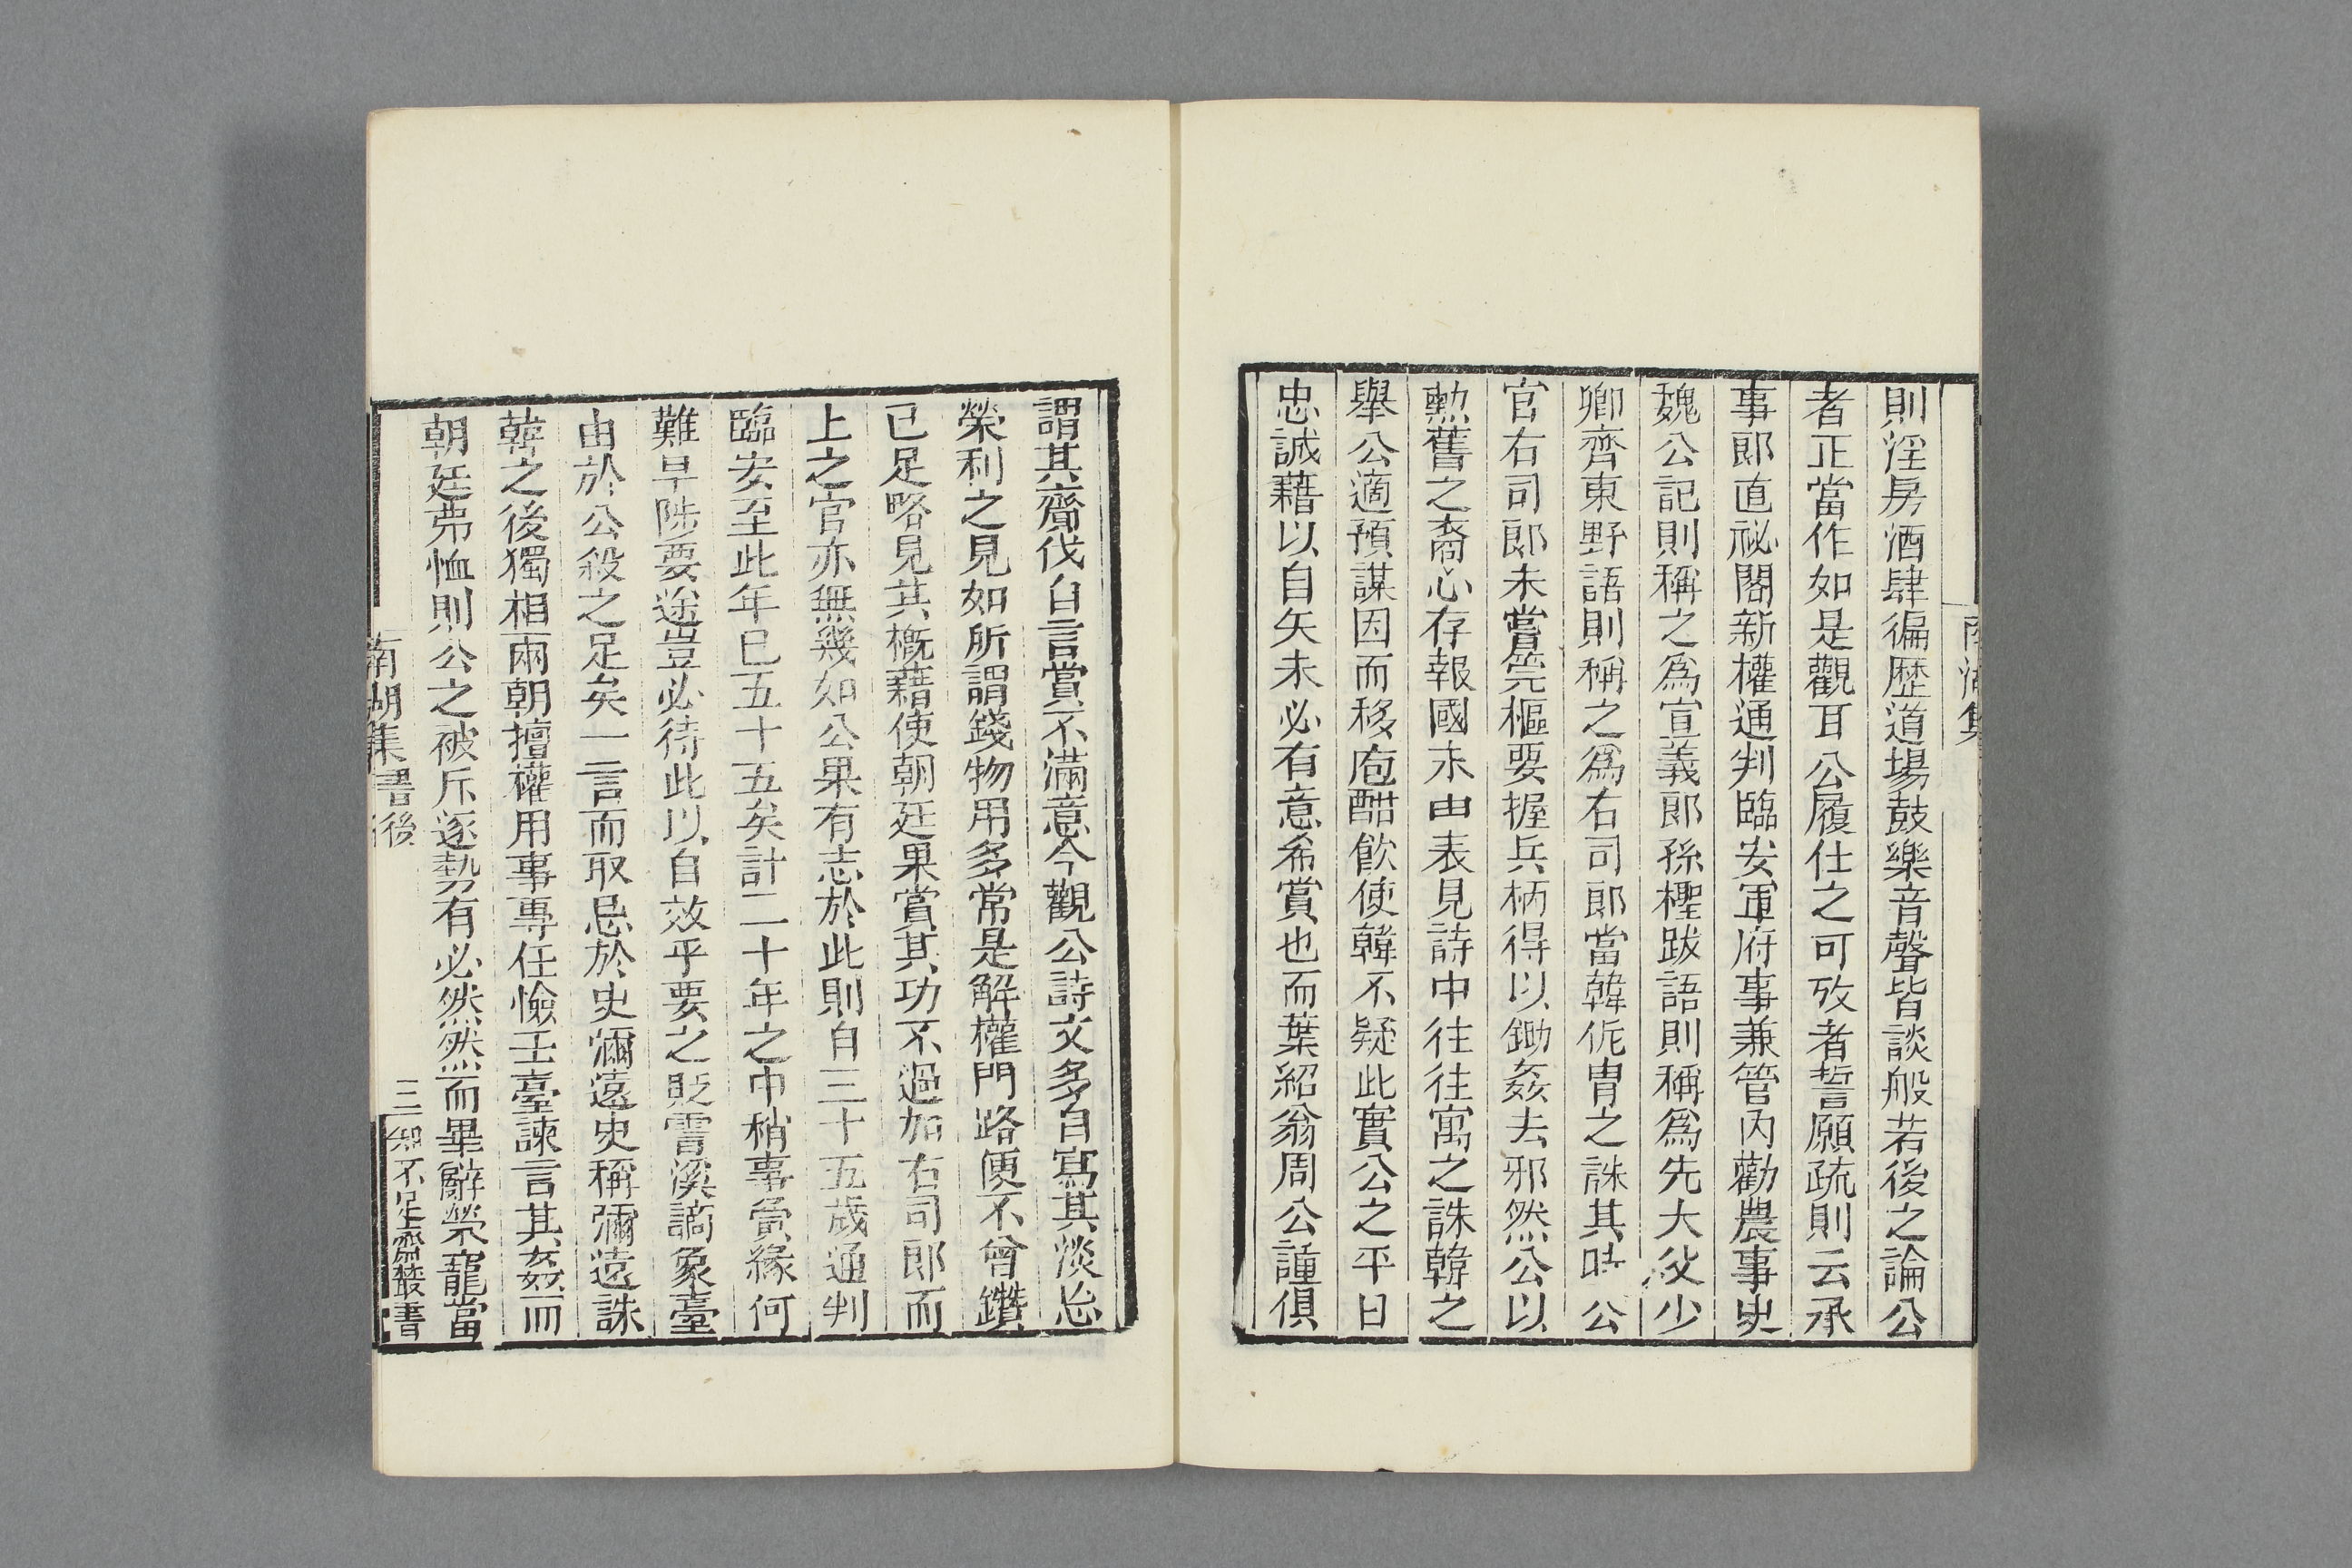 南湖集
則淫房酒肆徧歷道場鼓樂音聲皆談般若後之論公
者正當作如是觀耳公履仕之可攷者誓願疏則云承
事郎直祕閣新權通判臨安軍府事兼管內勸農事史
魏公記則稱之爲宣義郎孫檉跋語則稱爲先大父少
卿齊東野語則稱之爲右司郎當韓侂冑之誅其時公
官右司郎未嘗筦樞要握兵柄得以鋤姦去邪然公以
勲舊之裔心存報國未由表見詩中往往寓之誅韓之
舉公適預謀因而移庖酣飮使韓不疑此實公之平日
忠誠藉以自矢未必有意希賞也而葉紹翁周公謹俱
謂其齎伐自言賞不滿意今觀公詩文多自寫其淡忘
榮利之見如所謂錢物用多常是解權門路便不曾鑽
已足略見其槪藉使朝廷果賞其功不過如右司郎而
上之官亦無幾如公果有志於此則自三十五歲通判
臨安至此年巳五十五矣計二十年之中稍事夤緣何
難早陟要途豈必待此以自效乎要之貶霅溪謫象臺
由於公殺之足矣一言而取忌於史彌遠史稱彌遠誅
韓之後獨相兩朝擅權用事專任憸壬臺諫言其姦而
朝廷弗恤則公之被斥逐勢有必然然而畢辭榮寵當
南湖集書後
三
知不足齋叢書